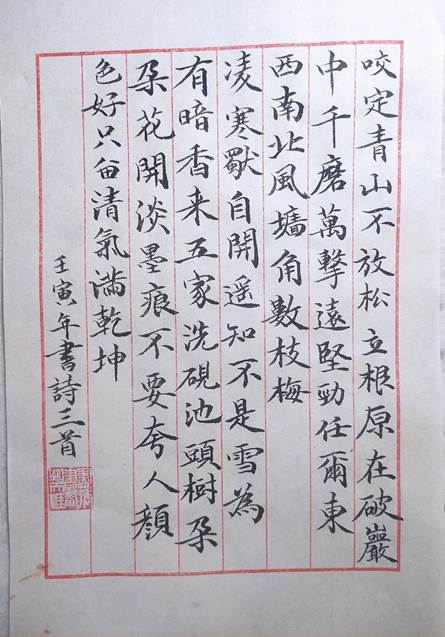 咬定青山不放松立根原在破巖
中千磨萬擊遠堅勁任爾東
西南北風墻角數枝梅
凌寒獸自開遥知不是雪為
有暗香来五家洗硯池頭樹朶
朶花開淡墨痕不要夸人顏
色好只留清氣滿乾坤
壬寅年書詩三首